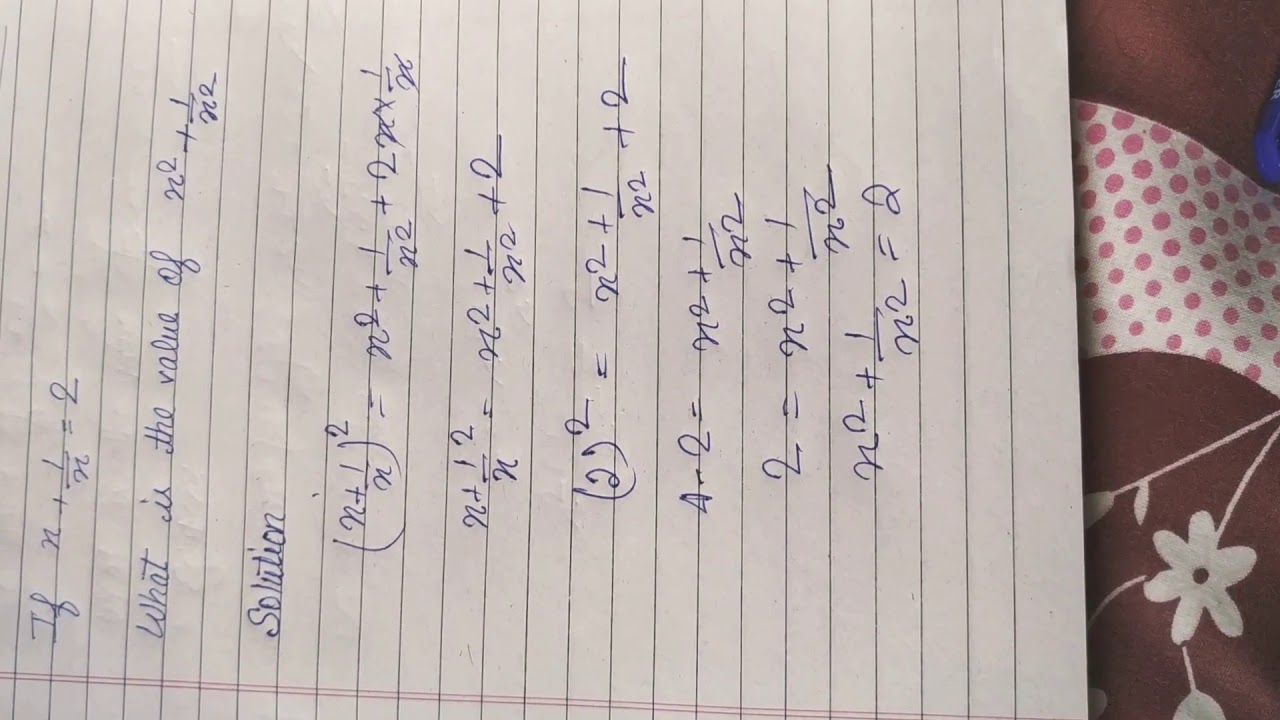 If x + 1/x = 2
What is the value of x² + 1/x²
Solution
(x + 1/x)² = x² + 1/x² + 2x × 1/x
x + 1/x² = x² + 1/x² + 2
(2)² = x² + 1/x² + 2
4 - 2 = x² + 1/x²
2 = x² + 1/x²
x² + 1/x² = 2